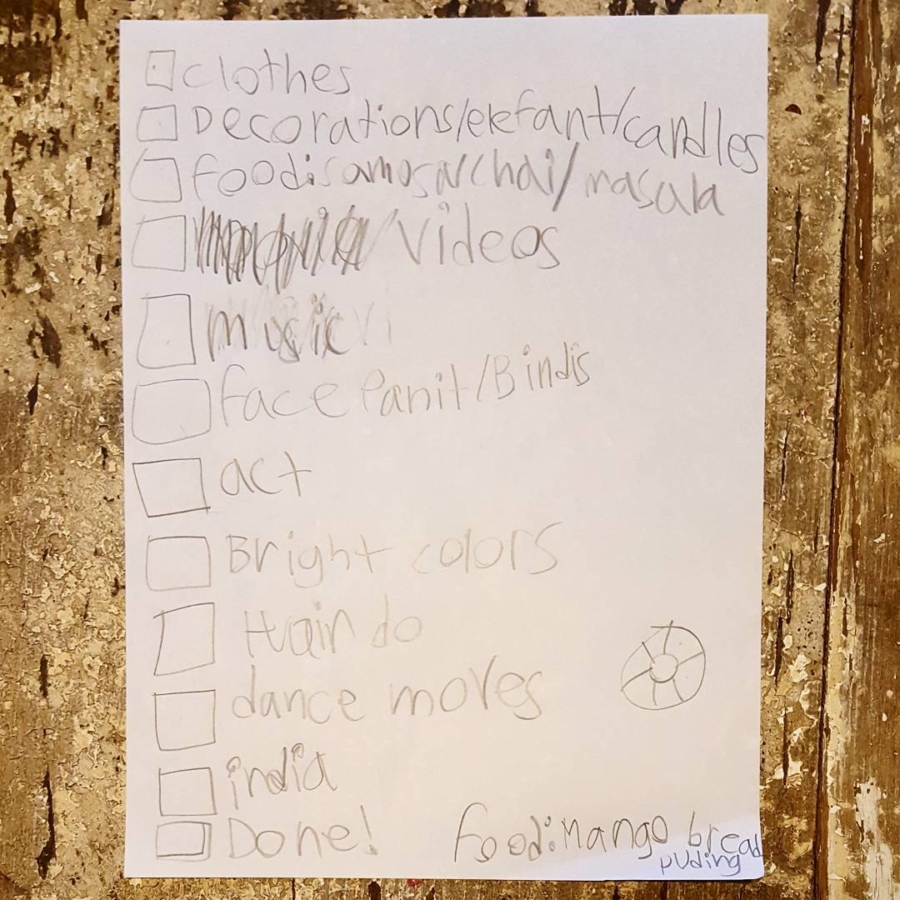 clothes
Decorations/elefant/candles
food:samosa/chai/masala
/Videos
music
face Panit/Bindis
act
Bright colors
Hair do
dance moves
india
Done!
food:Mango bread
puding